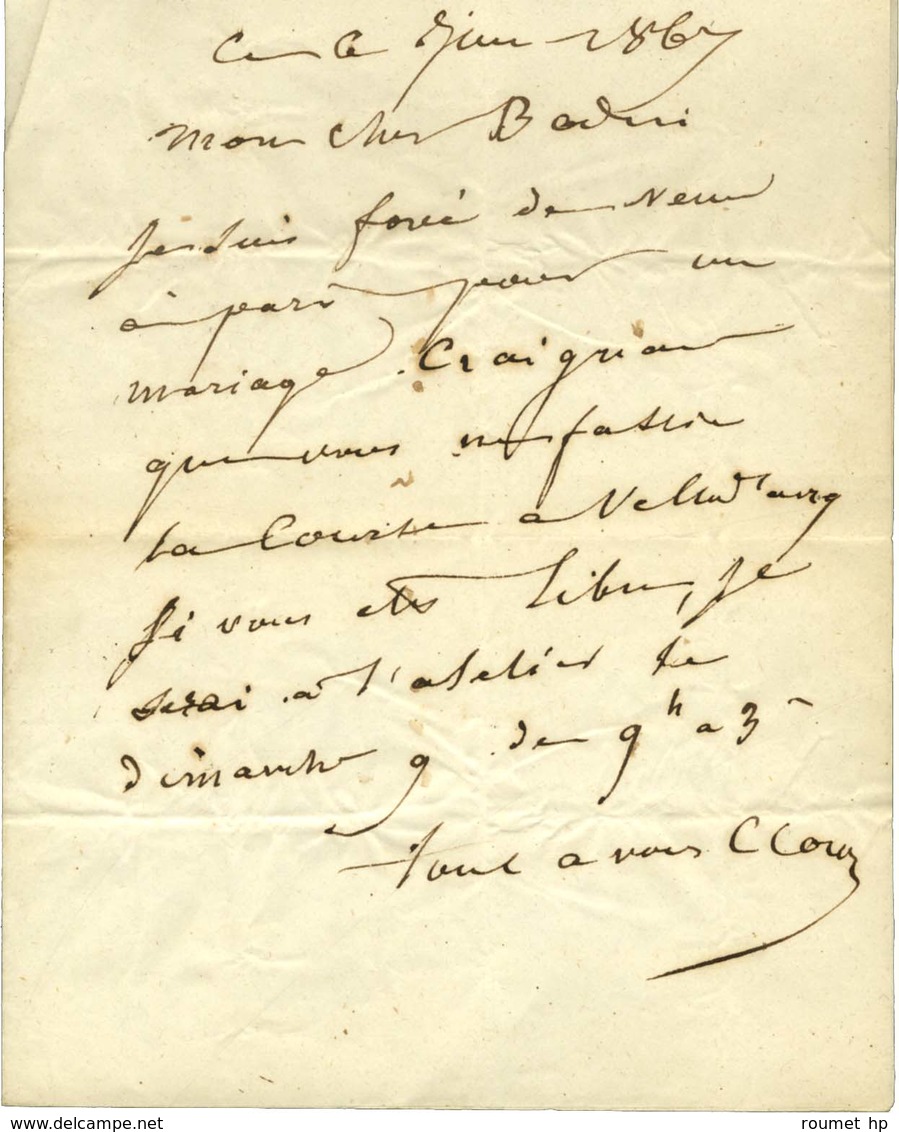 ce 6 juin 1867
Mon cher Badin
Je suis forcé de venir
à paris pour un
mariage. Craignant
que vous ne fassiez
la Course a
Si vous êtes libre, je
serai a l'atelier le
dimanche 9 de 9h a 3
tout a vous
roumet hp